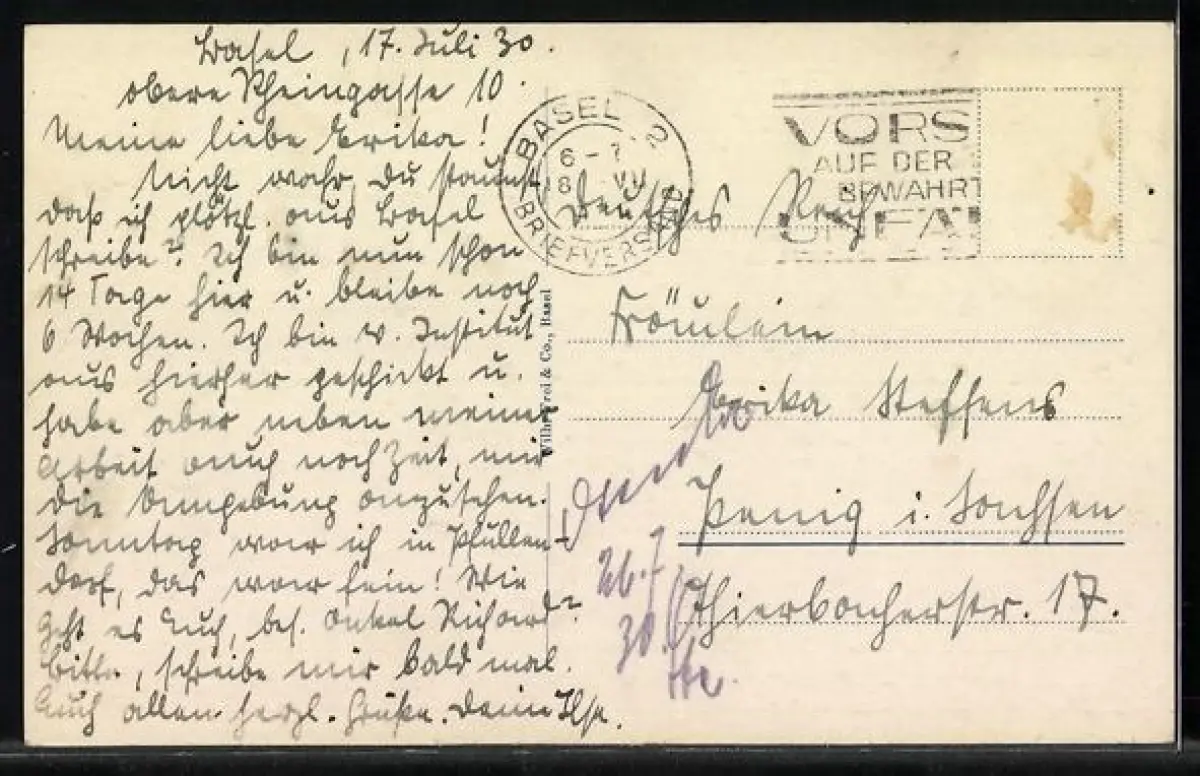 Basel, 17. Juli 30.
obere Rheingasse 10.
Meine liebe Erika!
Nicht wahr, Du staunst,
daß ich plötzl. aus Basel
schreibe? Ich bin nun schon
14 Tage hier u. bleibe noch
6 Wochen. Ich bin v. Institut
aus hierher geschickt u.
habe aber neben meiner
Arbeit auch noch Zeit, mir
die Umgebung anzusehen.
Sonntag war ich in Pfullen-
dorf, das war fein! Wie
geht es Euch, bes. Onkel Richard?
Bitte, schreibe mir bald mal.
Euch allen herzl. Grüße. Deine Ilse.
BASEL 2
BRIEFVERSAND
VORS
AUF DER
BEWAHRT
UNFA
& Co., Basel
Deutsches Reich
Fräulein
Erika Steffens
Penig i. Sachsen
Thierbacherstr. 17.
26.7
30.